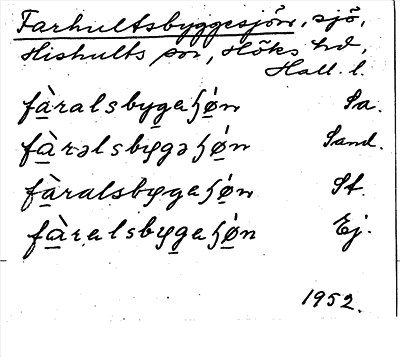 Farhultsbyggesjön, sjö,
Hishults sn, Höks hd,
Hall. l.
fàralsbygaɧǿn Sa.
fàrəlsbygəɧǿn Sand.
fàralsbygaɧǿn St.
fàralsbygaɧǿn Ej.
1952.